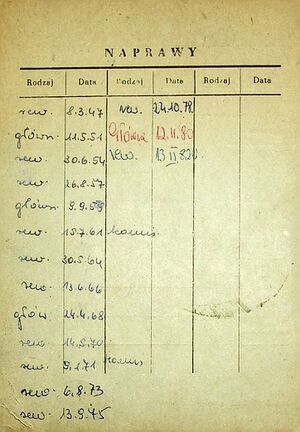 NAPRAWY
Rodzaj Data Rodzaj Data Rodzaj Data
rew. 8.3.47 rew. 24.10.78
główn. 11.5.51 Główna 12.11.80
rew. 30.6.54 rew. 13 II 82
rew. 26.8.57
główn. 9.9.59
rew. 15.7.61 komis
rew. 30.5.64
rew. 13.6.66
główn. 24.4.68
rew. 14.8.70
rew. 9.1.71 komis
rew. 6.8.73
rew. 13.9.75